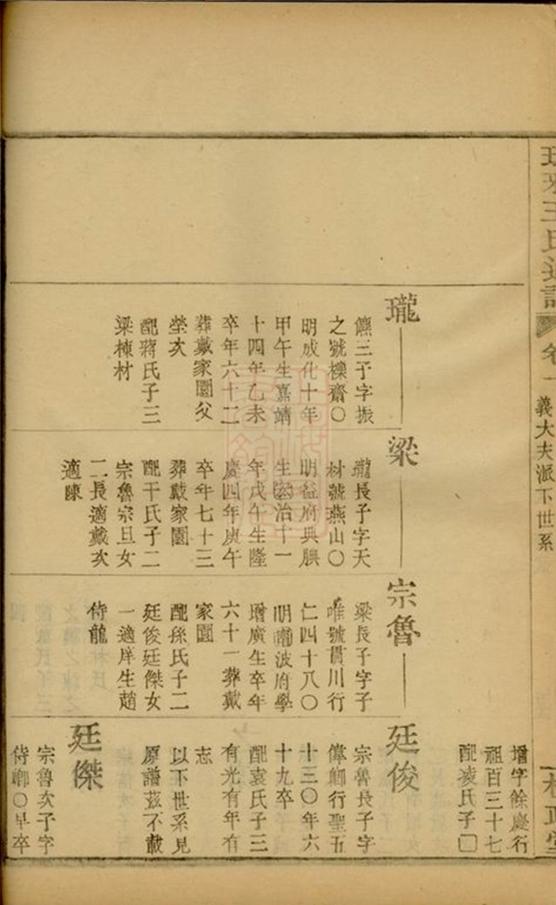 王氏
卷一
義大夫派下世系
增字餘慶行
祖百三十七
配凌氏子
瓏
三子字振
之號櫟齋〇
明成化十年
甲午生嘉靖
十四年乙未
卒年六十二
葬戴家園父
塋次
配蔣氏子三
梁棟材
梁
瓏長子字天
材號燕山〇
明益府典膳
生治十一
年戊午生隆
慶四年庚午
卒年七十三
葬戴家園
配干氏子二
宗魯宗旦女
二長適戴次
適陳
宗魯
梁長子字子
唯號貫川行
仁四十八〇
明寧波府學
增廣生卒年
六十一葬戴
家園
配孫氏子二
廷俊廷傑女
一適庠生趙
侍龍
廷俊
宗魯長子字
偉卿行聖五
十三〇年六
十九卒
配袁氏子三
有光有年有
志
以下世系見
原譜茲不載
廷傑
宗魯次子字
侍卿〇早卒